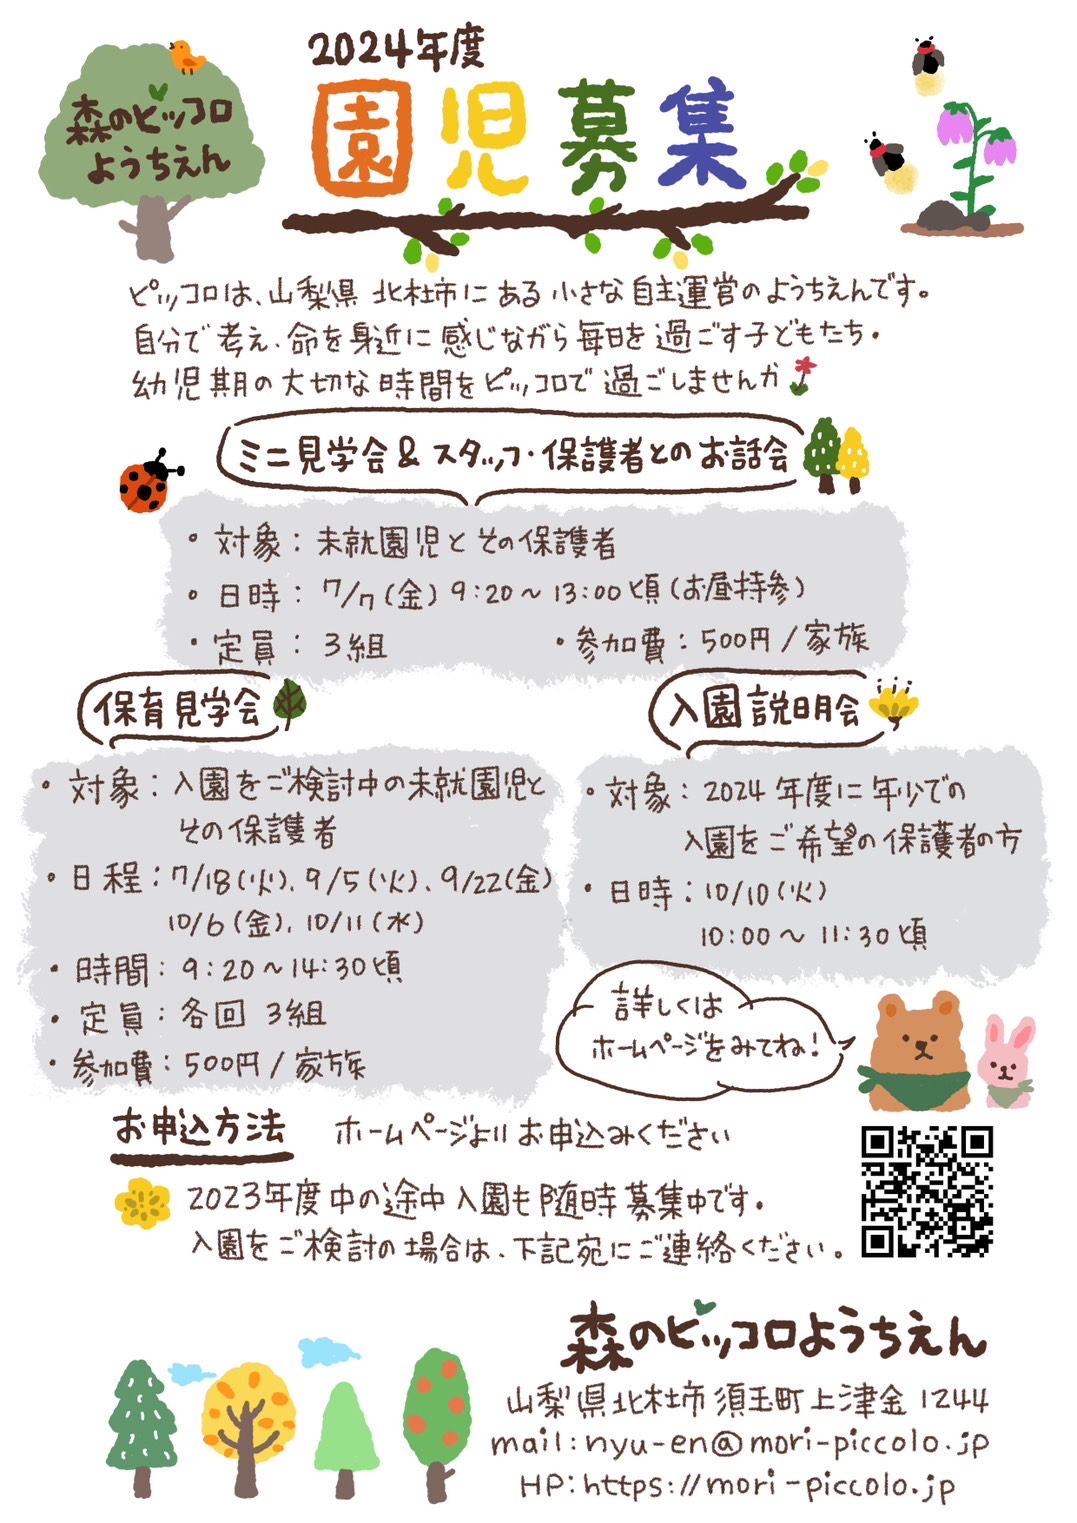 森のピッコロ
ようちえん
2024年度
園児募集
ピッコロは、山梨県 北杜市に ある 小さな 自主運営の ようちえんです。
自分で 考え、命を 身近に 感じながら 毎日を 過ごす 子どもたち。
幼児期の 大切な 時間を ピッコロで 過ごしませんか
ミニ見学会 & スタッフ・保護者とのお話会
・対象：未就園児と その保護者
・日時：7/7(金) 9:20～13:00頃(お昼持参)
・定員：3組
・参加費：500円/家族
保育見学会
・対象：入園をご検討中の未就園児と
その保護者
・日程：7/18(火)、9/5(火)、9/22(金)
10/6(金)、10/11(水)
・時間：9:20～14:30頃
・定員：各回 3組
・参加費：500円/家族
入園説明会
・対象：2024年度に年少での
入園をご希望の保護者の方
・日時：10/10(火)
10:00～11:30頃
詳しくは
ホームページをみてね！
お申込方法
ホームページより お申込みください
2023年度中の途中入園も随時募集中です。
入園をご検討の場合は、下記宛にご連絡ください。
森のピッコロようちえん
山梨県北杜市須玉町上津金1244
mail:nyu-en@mori-piccolo.jp
HP:https://mori-piccolo.jp